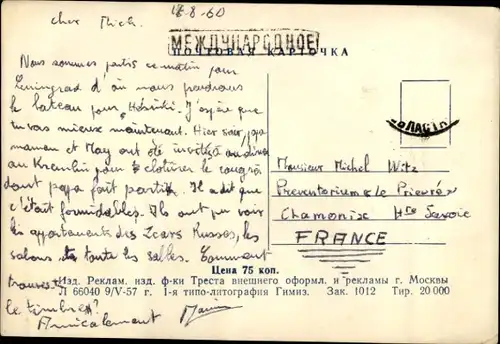 cher Mich.
18-8-60
МЕЖДУНАРОДНОЕ
ПОЧТОВАЯ КАРТОЧКА
Nous sommes partis ce matin pour
Leningrad d'où nous prendrons
le bateau pour Helsinki. J'espère que
tu vas mieux maintenant. Hier soir, papa
maman et May ont été invités au dîner
au Kremlin pour clôturer le congrès
dont papa fait partie. Il a dit que
c'était formidables. Ils ont pu voir
les appartements des Tzars Russes, les
salons et toutes les salles. Comment
trouves-tu
le timbre?
Amicalement
Monsieur Michel Witz
Preventorium "Le Prieuré"
Chamonix Hte Savoie
FRANCE
Цена 75 коп.
Изд. Реклам. изд. ф-ки Треста внешнего оформл. и рекламы г. Москвы
Л 66040 9/V-57 г. 1-я типо-литография Гимиз. Зак. 1012 Тир. 20 000